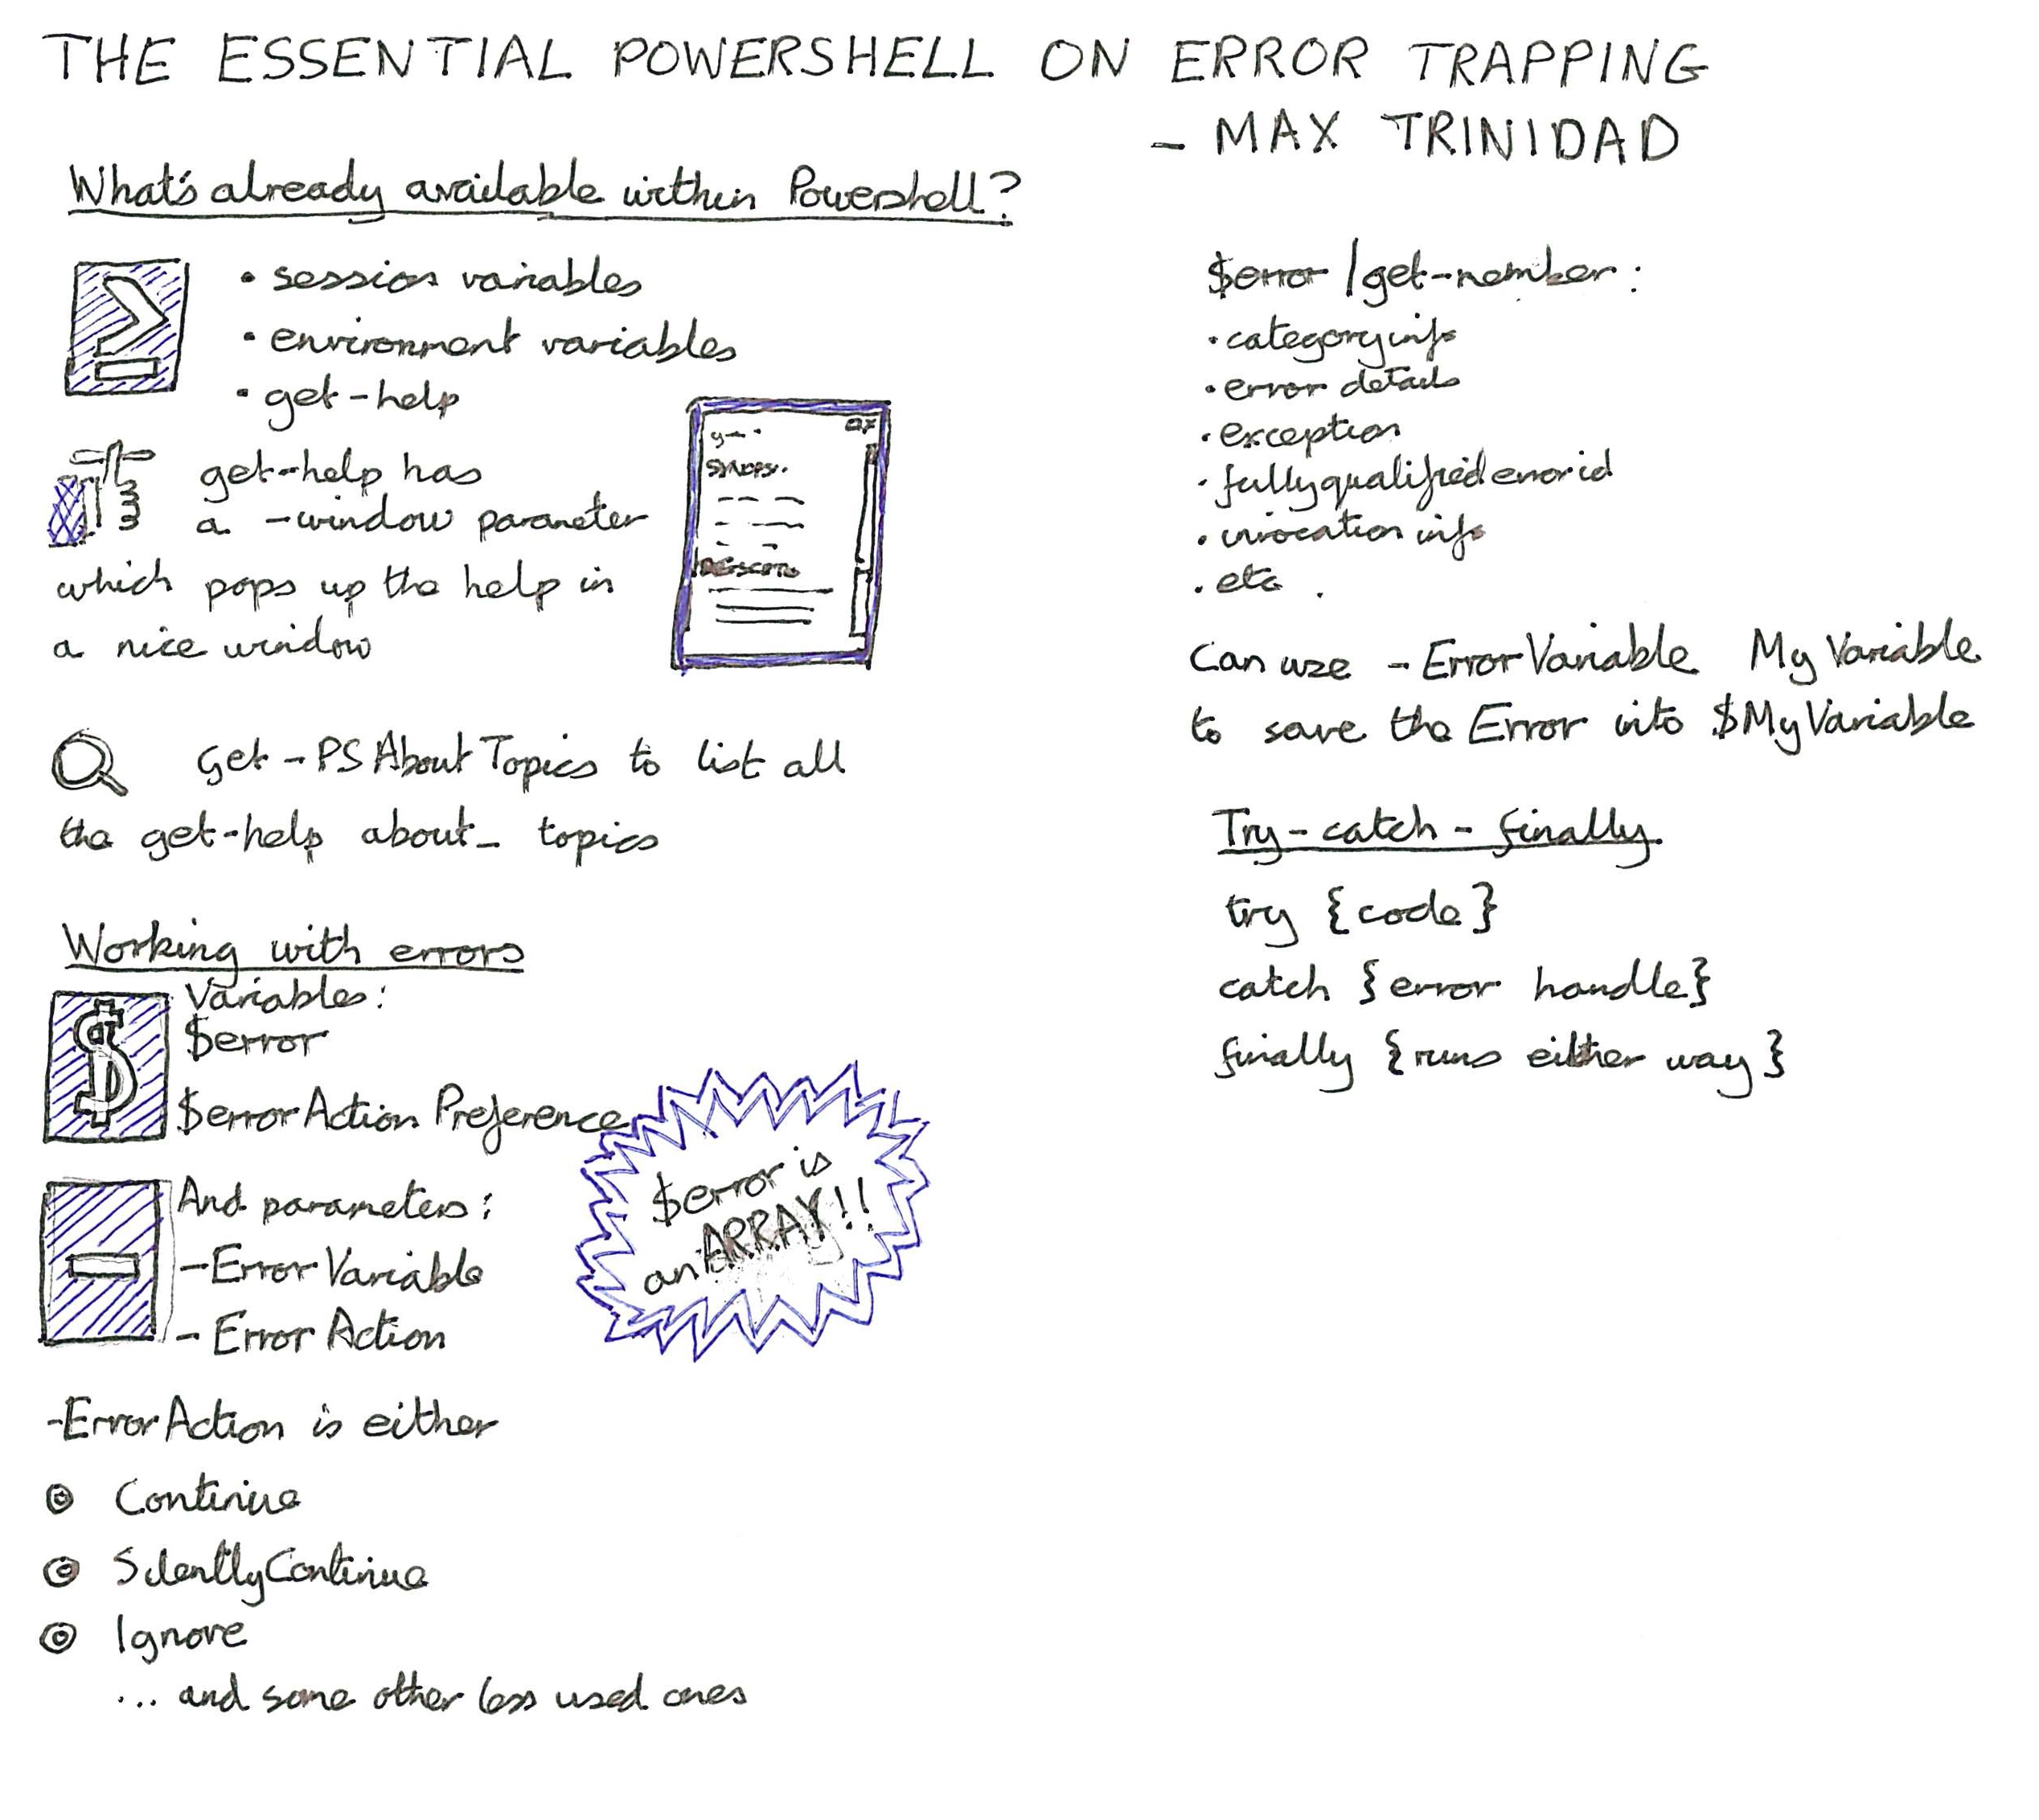 THE ESSENTIAL POWERSHELL ON ERROR TRAPPING
- MAX TRINIDAD
What's already available within Powershell?
• session variables
• environment variables
• get-help
get-help has
a -window parameter
which pops up the help in
a nice window
Get-PSAboutTopics to list all
the get-help about_ topics
Working with errors
Variables:
$error
$errorActionPreference
$error is
an ARRAY!!
And parameters:
-ErrorVariable
-ErrorAction
-ErrorAction is either
Continue
SilentlyContinue
Ignore
... and some other less used ones
$error | get-member:
• categoryinfo
• error details
• exception
• fullyqualifiederrorid
• invocation info
• etc.
Can use -ErrorVariable MyVariable
to save the Error into $MyVariable
Try-catch-finally
try {code}
catch {error handle}
finally {runs either way}